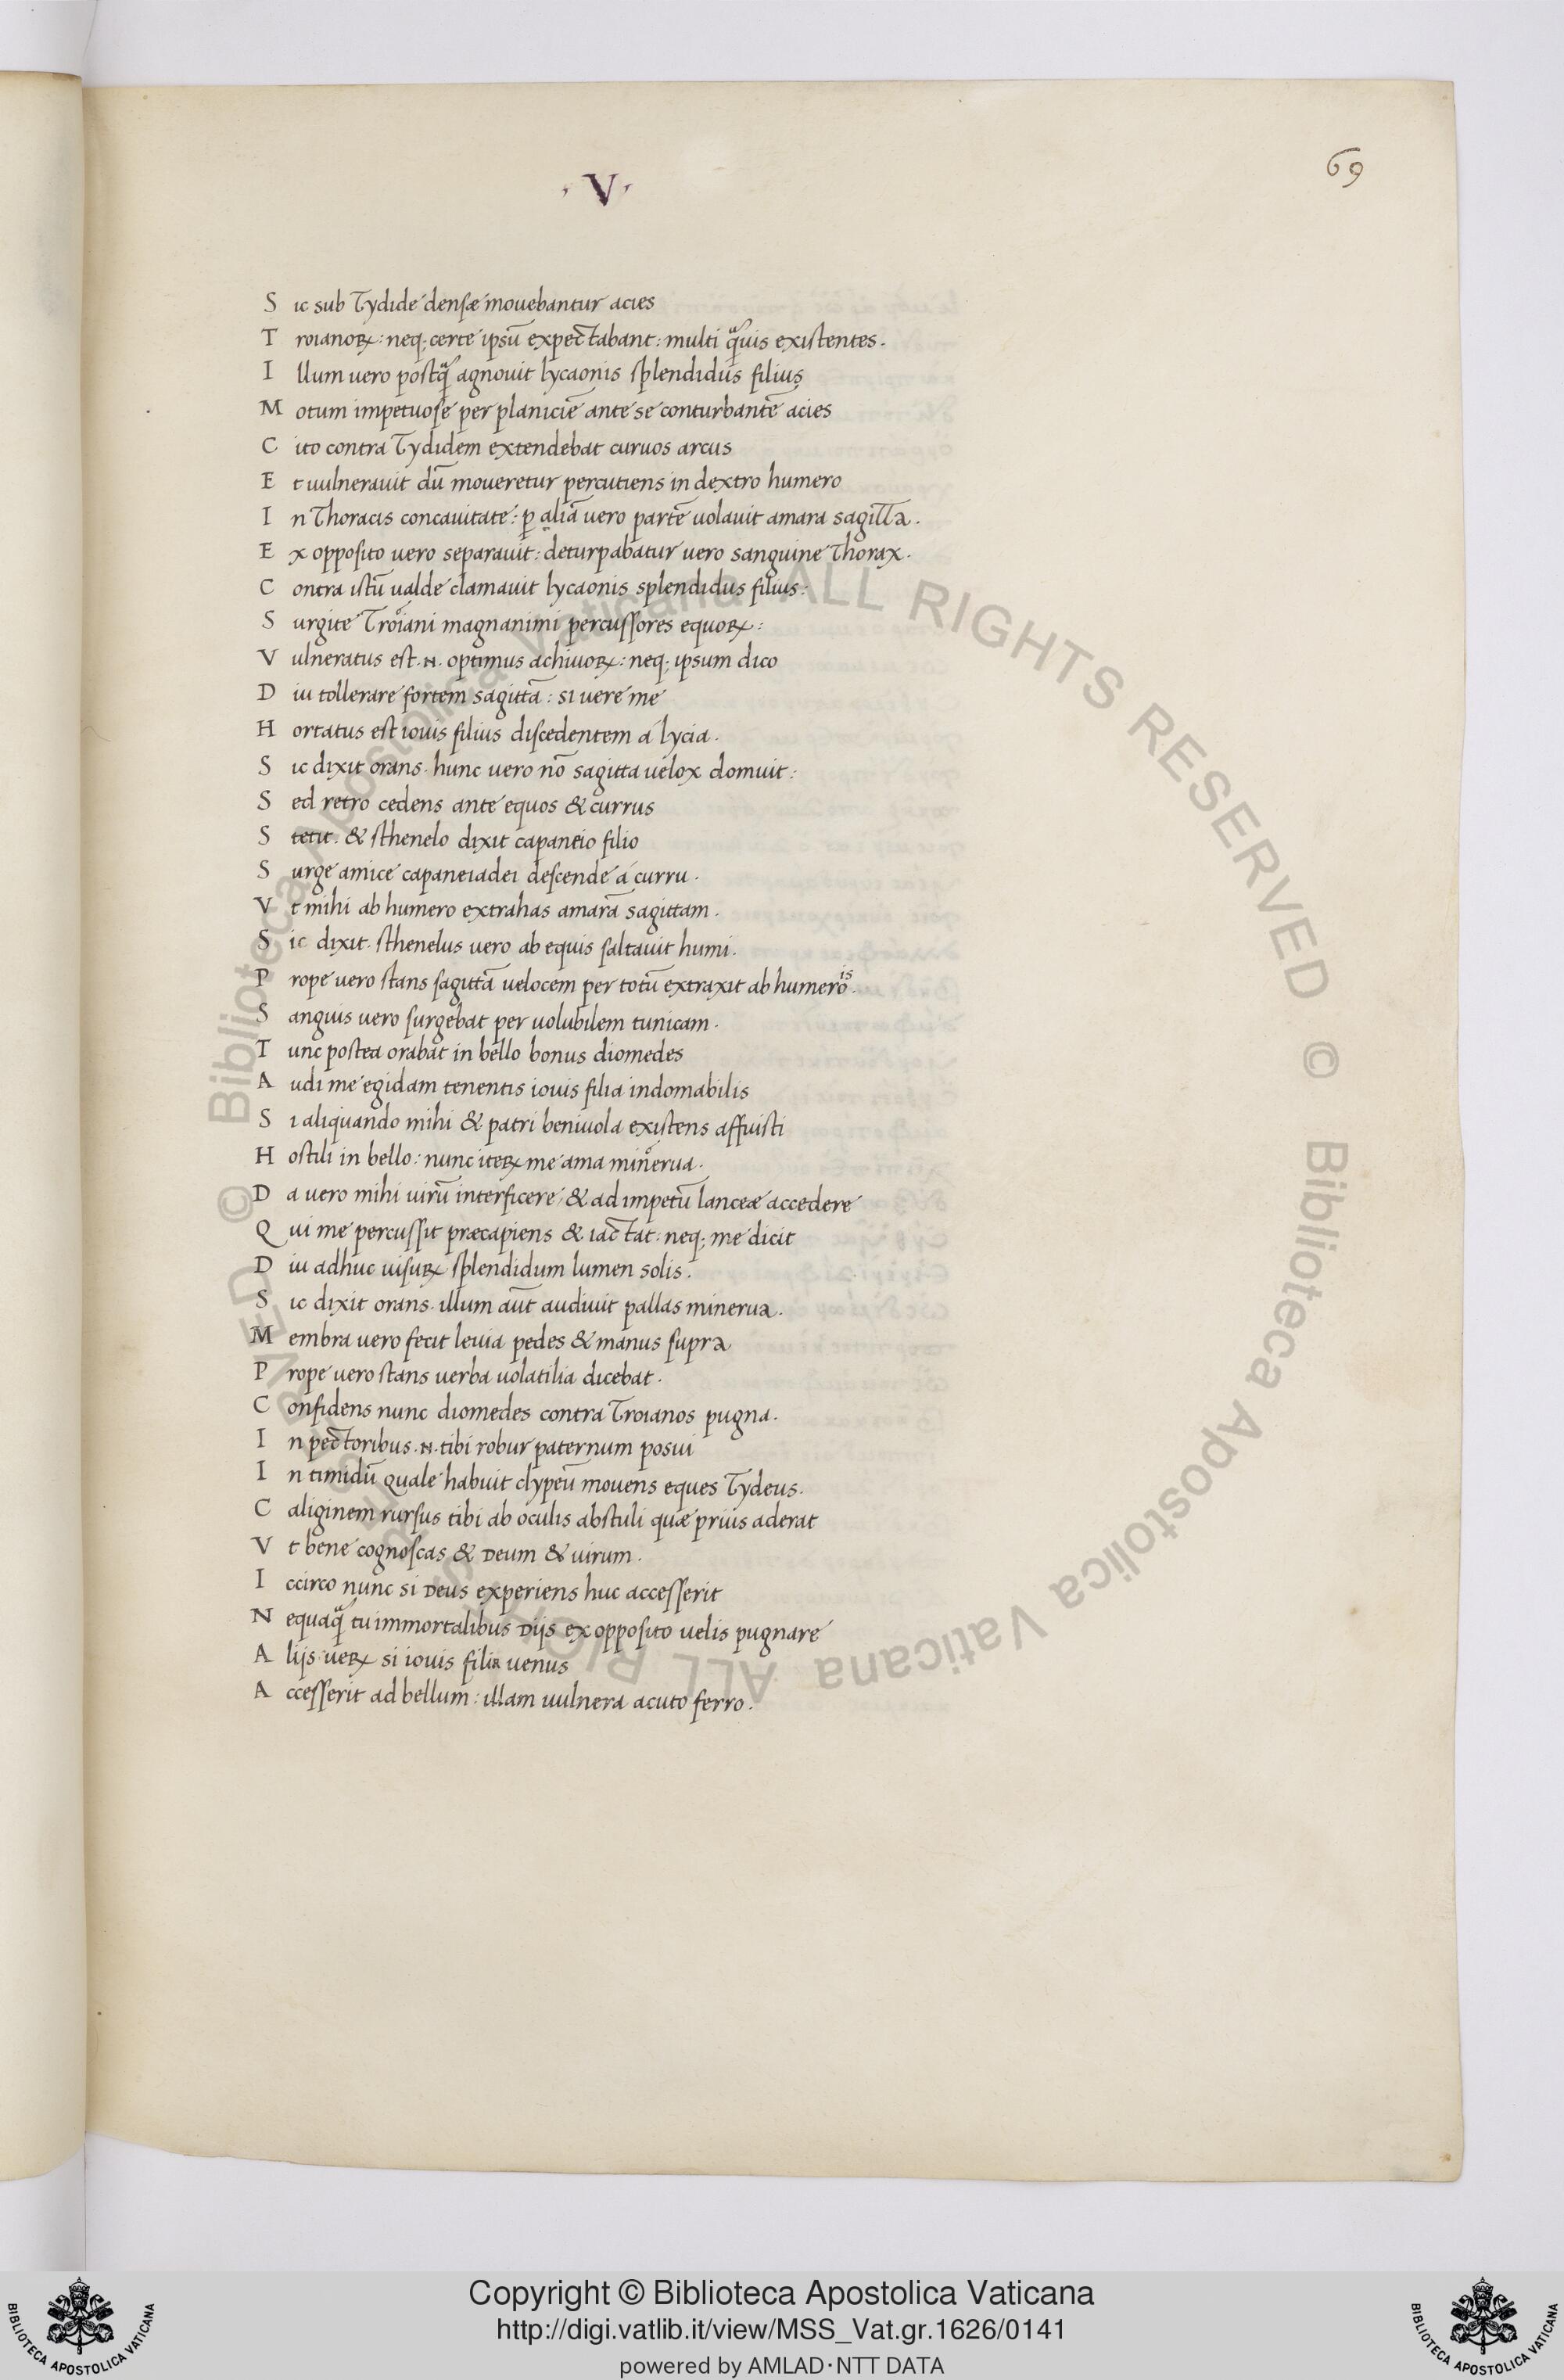 · V ·
69
Sic sub Tydide densæ mouebantur acies
Troianoꝝ: neq; certe ipsū expectabant: multi q̃uis existentes.
Illum uero postq̃ agnouit lycaonis splendidus filius
Motum impetuose per planiciē ante se conturbantē acies
Cito contra Tydidem extendebat curuos arcus
Et uulnerauit dū moueretur percutiens in dextro humero
In Thoracis concauitate: ꝑ aliā uero partē uolauit amara sagitta.
Ex opposito uero separauit: deturpabatur uero sanguine Thorax.
Contra istū ualde clamauit lycaonis splendidus filius:
Surgite Troiani magnanimi percussores equoꝝ:
Vulneratus est .N. optimus achiuoꝝ: neq; ipsum dico
Diu tollerare fortem sagittā: si uere me
Hortatus est iouis filius discedentem á lycia.
Sic dixit orans. hunc uero nō sagitta uelox domuit:
Sed retro cedens ante equos & currus
Stetit. & sthenelo dixit capaneio filio
Surge amice capaneiadei descende á curru.
Vt mihi ab humero extrahas amarā sagittam.
Sic dixit. sthenelus uero ab equis saltauit humi.
Prope uero stans sagittā uelocem per totū extraxit ab humerois.
Sanguis uero surgebat per uolubilem tunicam.
Tunc postea orabat in bello bonus diomedes
Audi me egidam tenentis iouis filia indomabilis
Si aliquando mihi & patri beniuola existens affuisti
Hostili in bello: nunc iteꝝ me ama minerua.
Da uero mihi uirū interficere, & ad impetū lanceæ accedere
Qui me percussit præcapiens & iactat: neq; me dicit
Diu adhuc uisuꝝ splendidum lumen solis.
Sic dixit orans. illum aūt audiuit pallas minerua.
Membra uero fecit leuia pedes & manus supra
Prope uero stans uerba uolatilia dicebat.
Confidens nunc diomedes contra Troianos pugna.
In pectoribus .N. tibi robur paternum posui
In timidū quale habuit clypeū mouens eques Tydeus.
Caliginem rursus tibi ab oculis abstuli quæ prius aderat
Vt bene cognoscas & Deum & uirum.
Iccirco nunc si Deus experiens huc accesserit
Nequaq̃ tu immortalibus Dijs ex opposito uelis pugnare
Alijs. ueꝝ si iouis filia uenus
Accesserit ad bellum: illam uulnera acuto ferro.
© Biblioteca Apostolica Vaticana ALL RIGHTS RESERVED © Biblioteca Apostolica Vaticana ALL RIGHTS RESERVED
Copyright © Biblioteca Apostolica Vaticana
http://digi.vatlib.it/view/MSS_Vat.gr.1626/0141
powered by AMLAD·NTT DATA
BIBLIOTECA APOSTOLICA VATICANA
BIBLIOTECA APOSTOLICA VATICANA